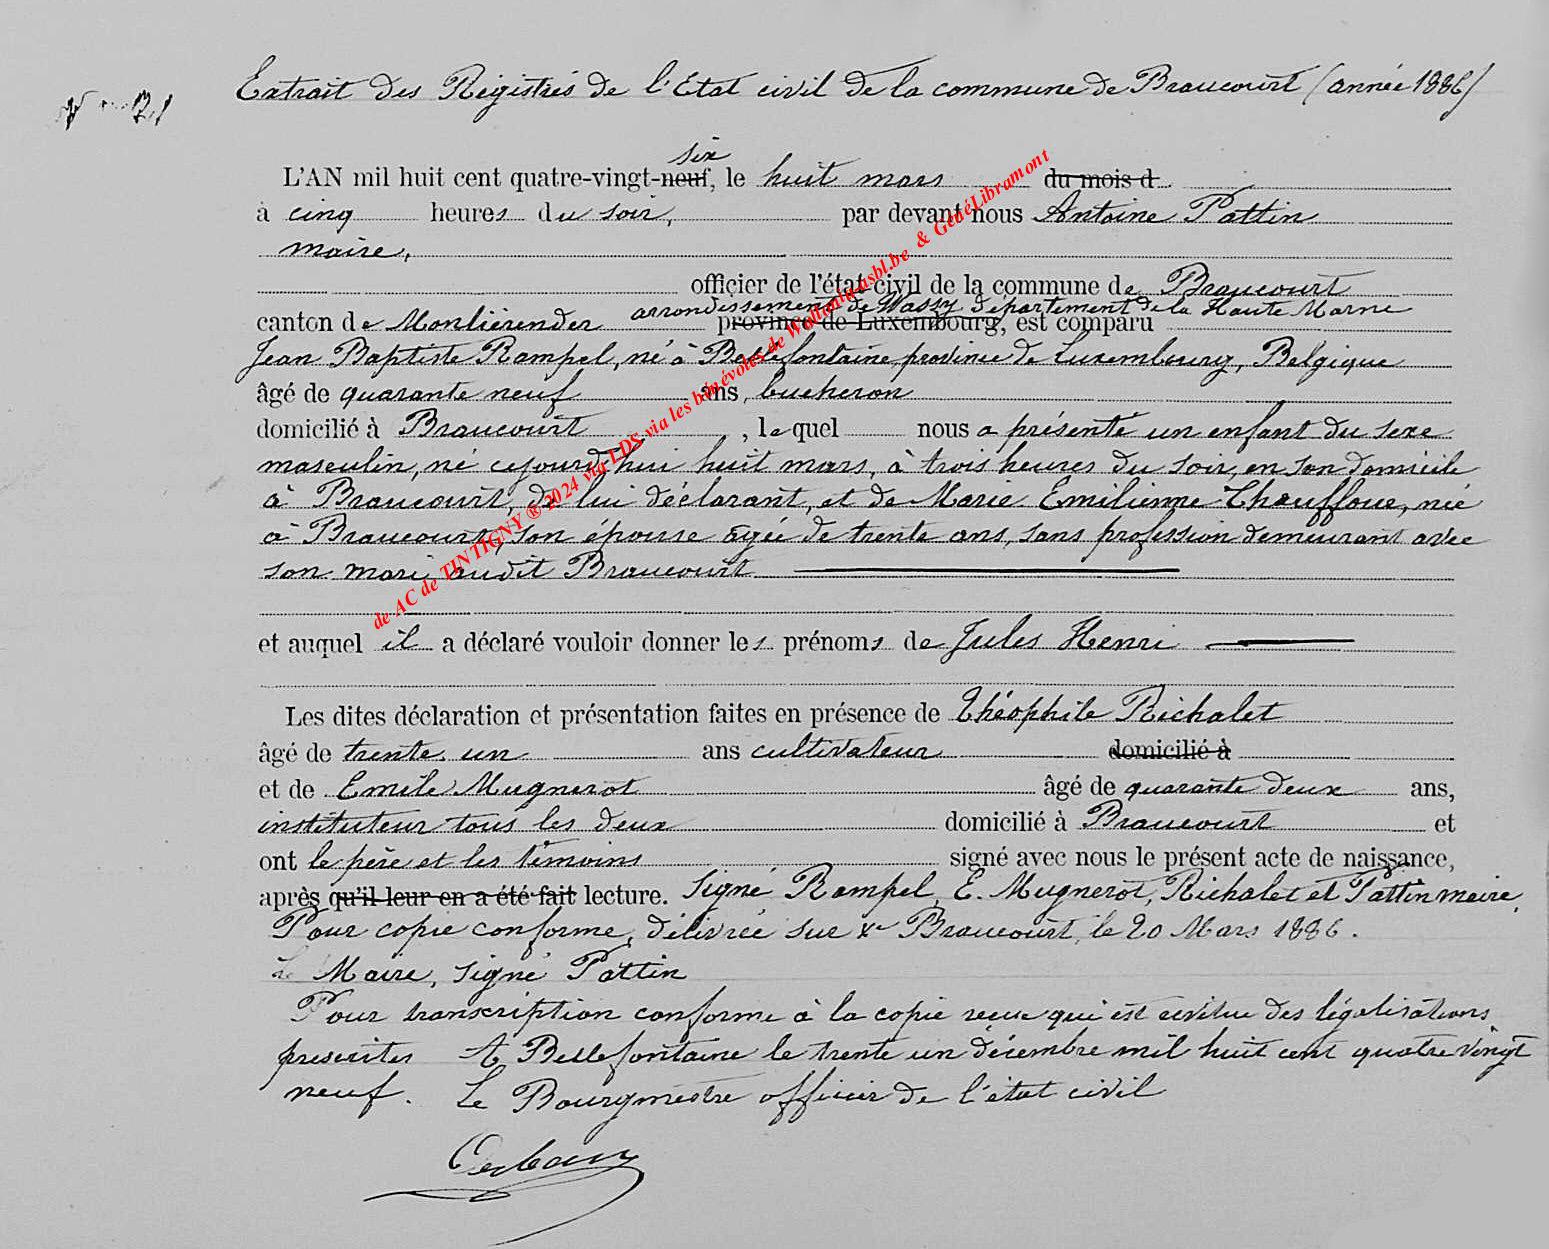 Extrait des Régistrés de l'Etat civil de la commune de Braucourt (année 1886)
21
six
L'AN mil huit cent quatre-vingt-neuf, le huit mars du mois d
à cinq heures du soir, par devant nous Antoine Pattin
maire,
officier de l'état-civil de la commune de Braucourt
arrondissement de Wassy département de la Haute Marne
canton de Montiérender province de Luxembourg, est comparu
Jean Baptiste Rampel, né à Bellefontaine province de Luxembourg, Belgique
âgé de quarante neuf ans, bucheron
domicilié à Braucourt, lequel nous a présenté un enfant du sexe
masculin, né cejourd'hui huit mars, à trois heures du soir, en son domicile
à Braucourt, de lui déclarant, et de Marie Emilienne Chauffour, née
à Braucourt, son épouse âgée de trente ans, sans profession demeurant avec
son mari audit Braucourt
et auquel il a déclaré vouloir donner les prénoms de Jules Henri
Les dites déclaration et présentation faites en présence de Théophile Richalet
âgé de trente un ans cultivateur domicilié à
et de Emile Mugnerot âgé de quarante deux ans,
instituteur tous les deux domicilié à Braucourt et
ont le père et les témoins signé avec nous le présent acte de naissance,
après qu'il leur en a été fait lecture. Signé Rampel, E. Mugnerot, Richalet et Pattin maire.
Pour copie conforme, délivrée sur Braucourt, le 20 Mars 1886.
Le Maire, signé Pattin
Pour transcription conforme à la copie reçue qui est revêtue des légalisations
prescrites A Bellefontaine le trente un décembre mil huit cent quatre vingt
neuf. Le Bourgmestre officier de l'état civil
de AC de TINTIGNY ® 2024 via LDS via les bénévoles de Wallonia-asbl.be & GénéLibramont